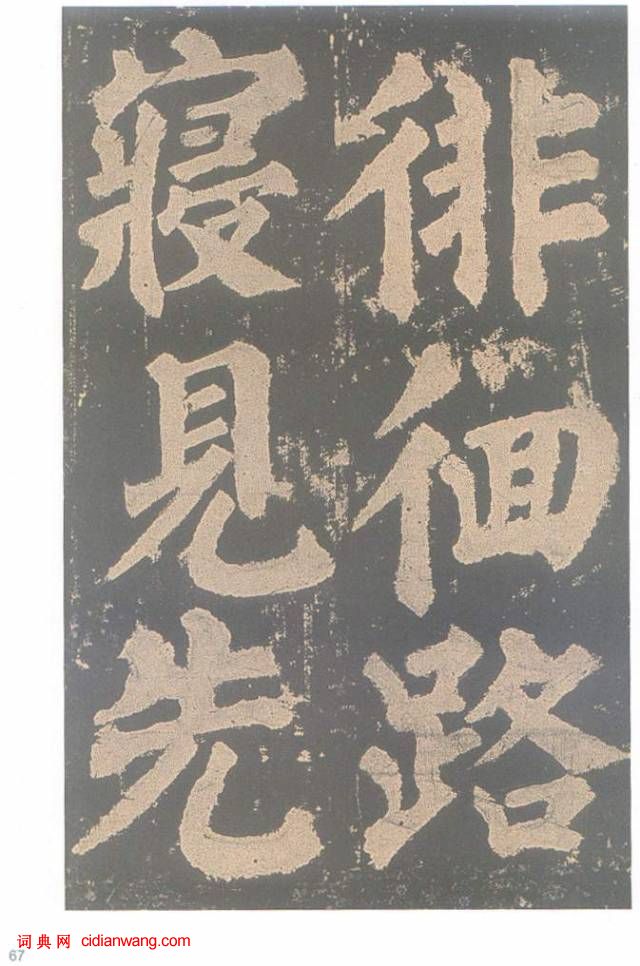 徘徊路
寢見先
词典网 cidianwang.com
67